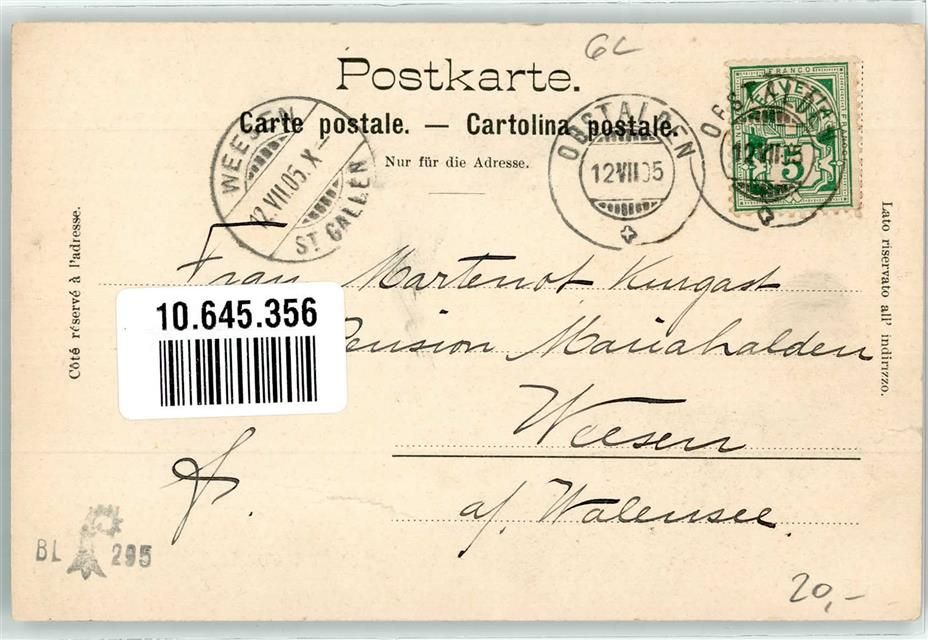 GL
Postkarte.
Carte postale. — Cartolina postale.
Nur für die Adresse.
WEESEN
12.VII.05.X
ST GALLEN
OBSTALDEN
12 VII 05
OBSTALDEN
12 VII 05
FRANCO
HELVETIA
5
Côté réservé à l'adresse.
Lato riservato all' indirizzo.
Frau Martenot, Kurgast
10.645.356
Pension Mariahalden
Weesen
a/. Walensee.
BL 295
20,-